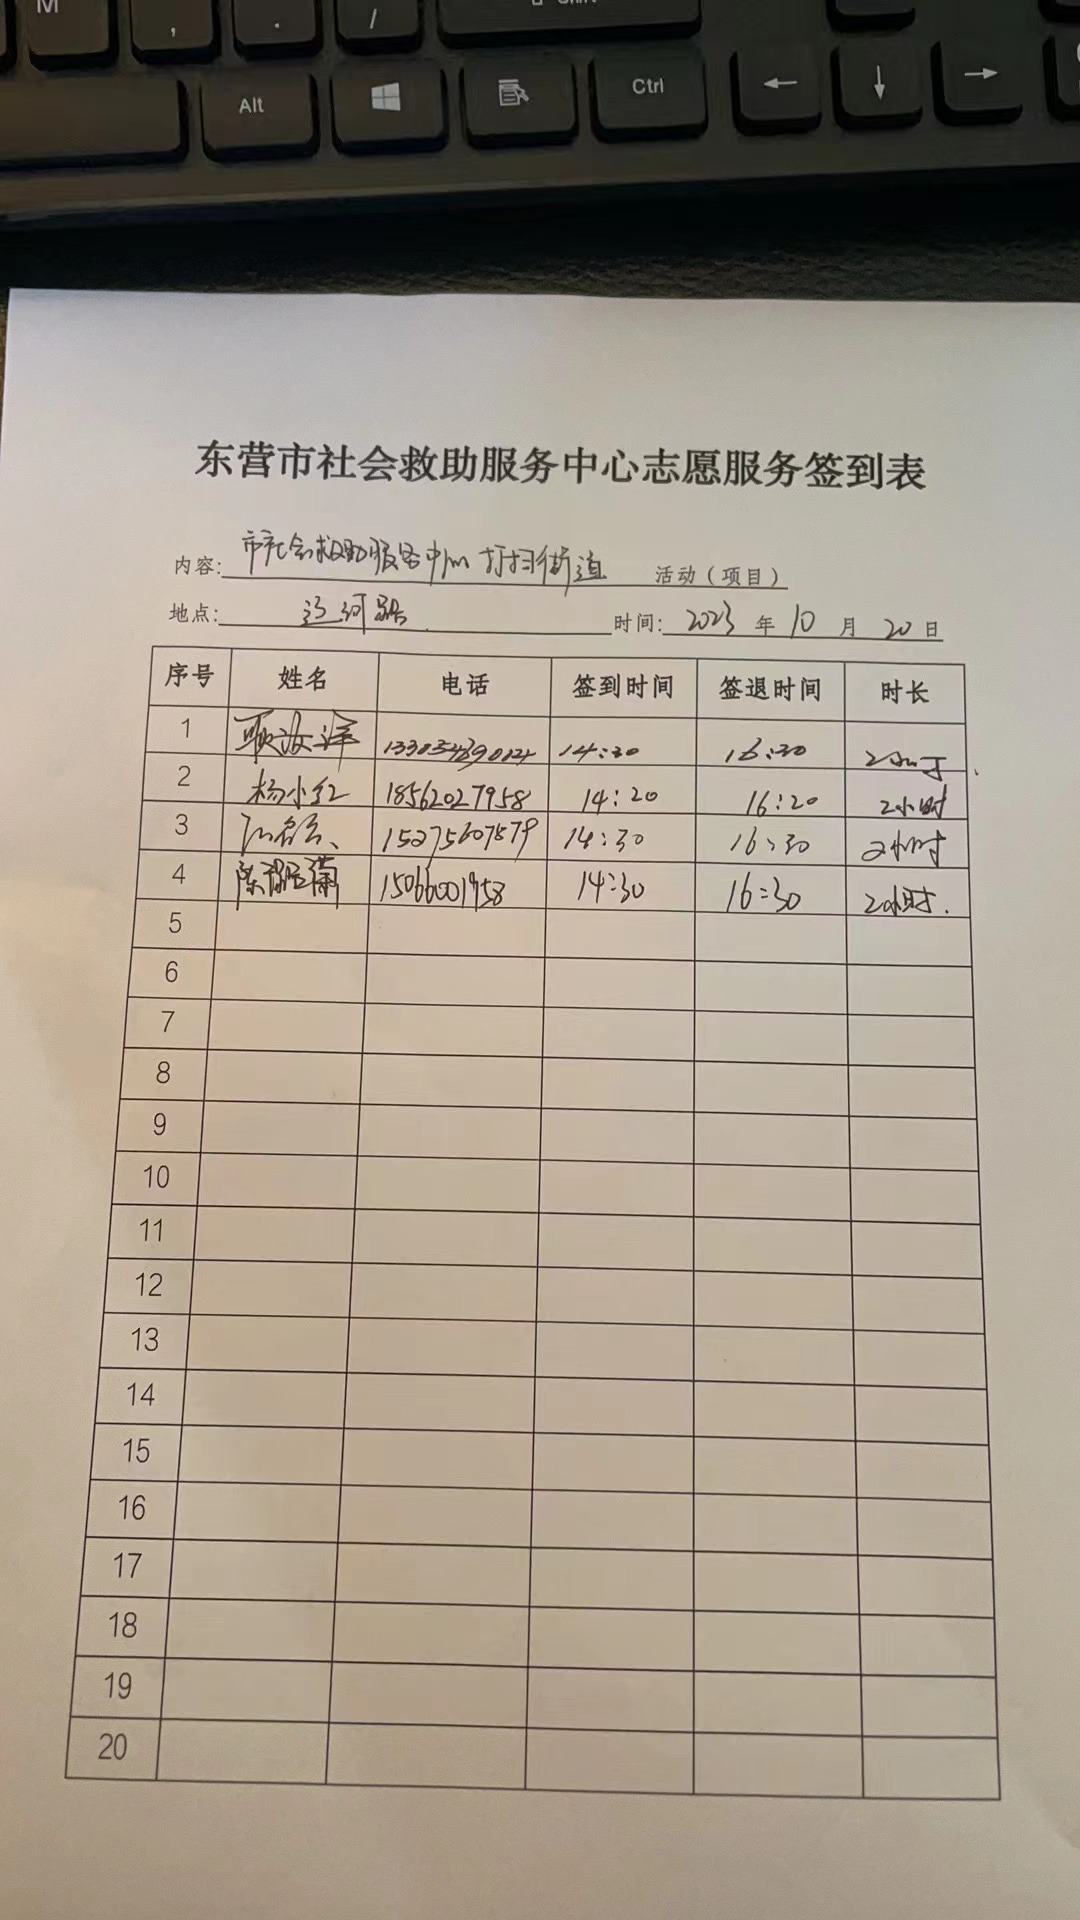 M , . / Shift
Alt Ctrl ← ↓ →
东营市社会救助服务中心志愿服务签到表
内容: 市社会救助服务中心打扫街道 活动（项目）
地点: 时间: 2023 年 10 月 20 日
序号 姓名 电话 签到时间 签退时间 时长
1 14:30 16:30 2小时
2 杨小红 18562027958 14:20 16:20 2小时
3 15275607879 14:30 16:30 2小时
4 15066001958 14:30 16:30 2小时.
5
6
7
8
9
10
11
12
13
14
15
16
17
18
19
20